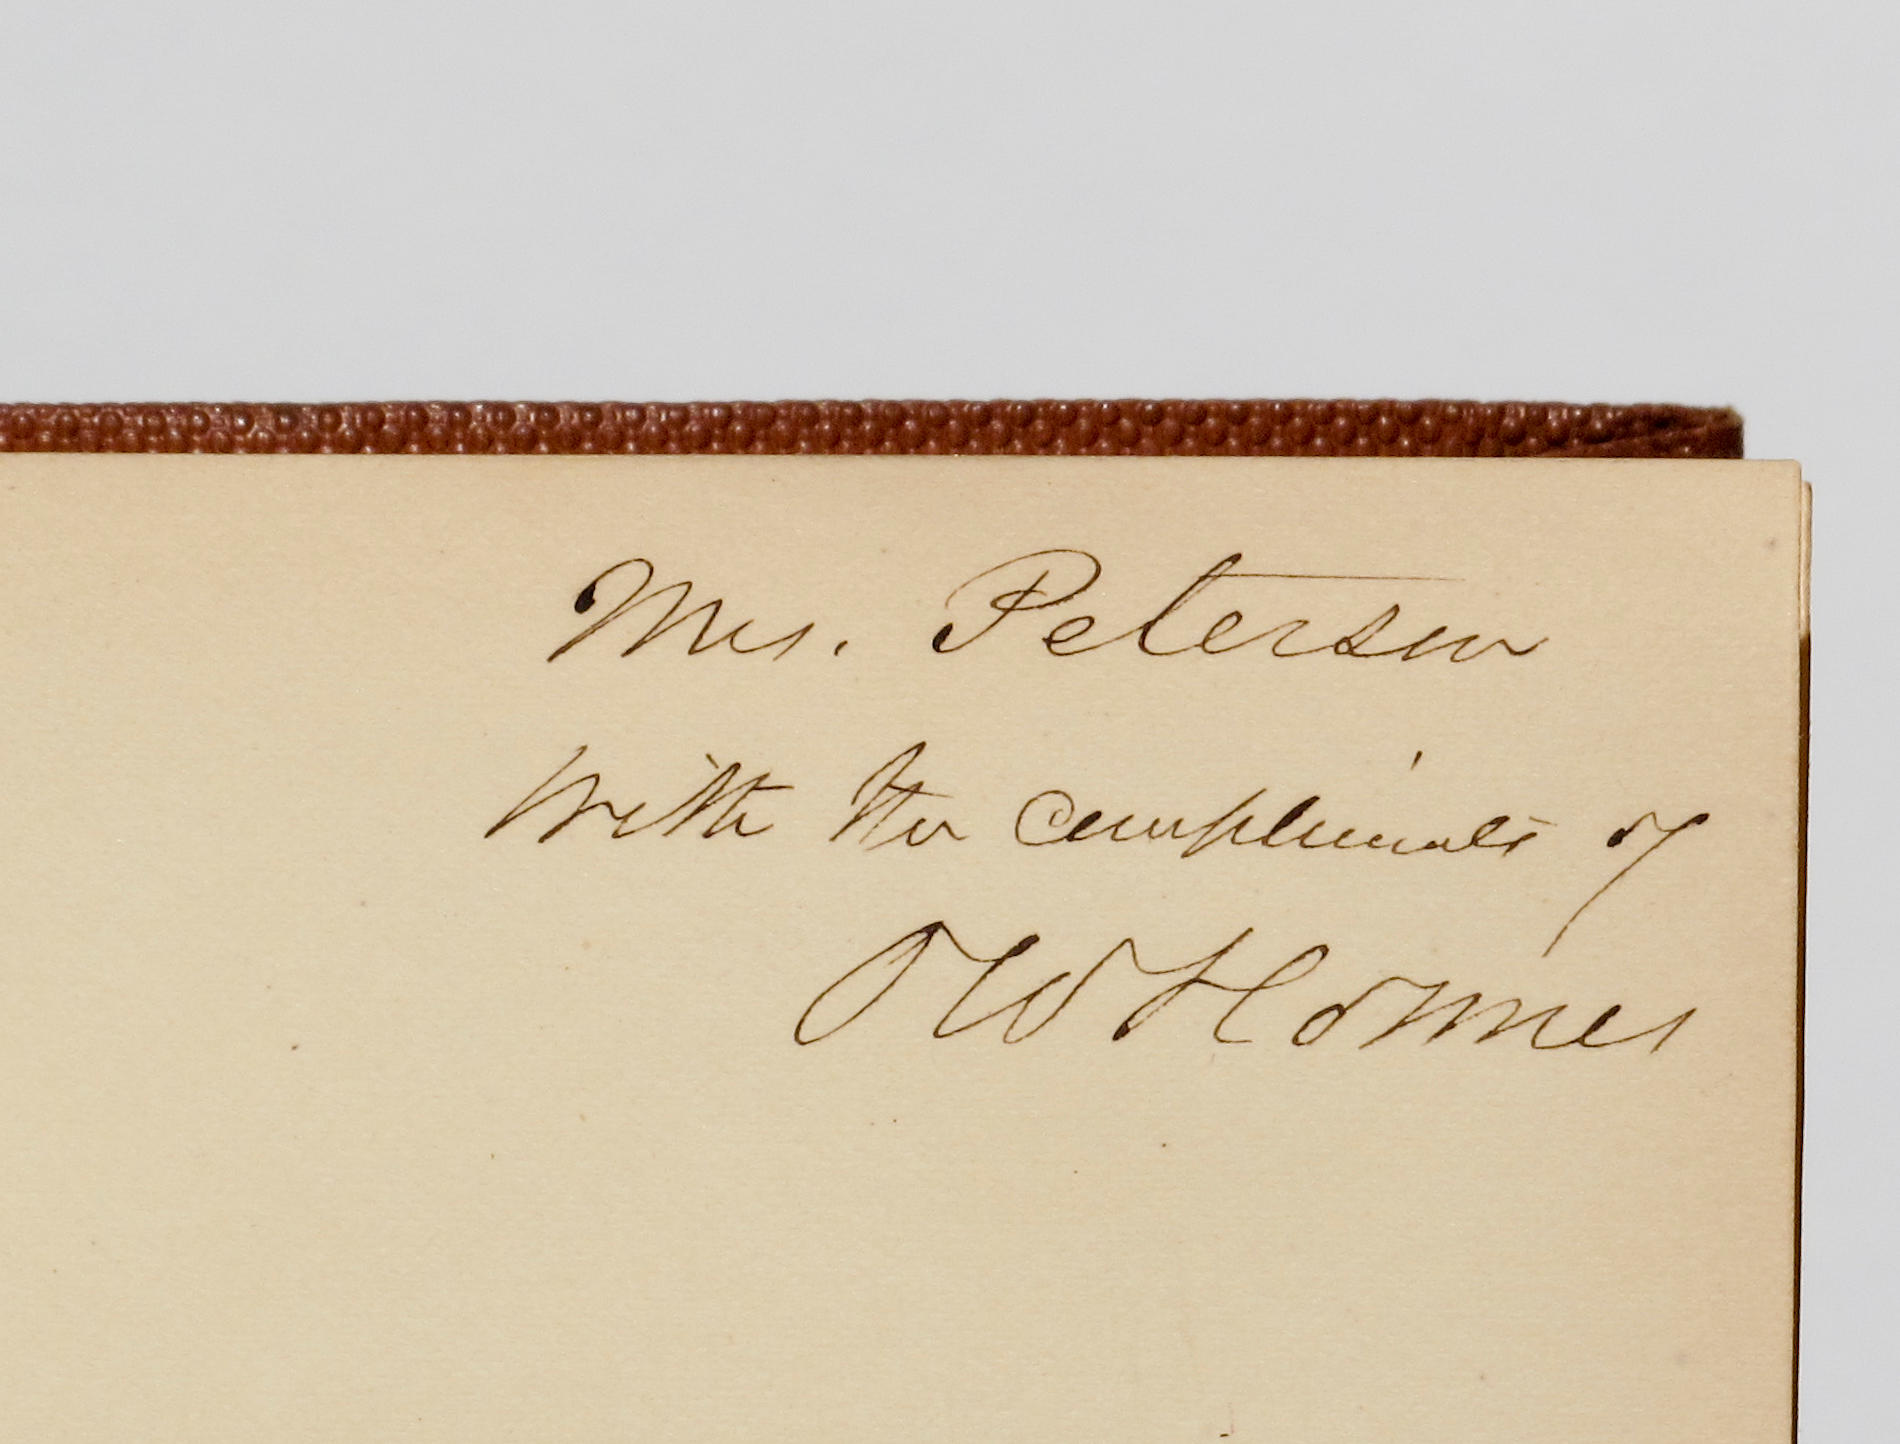 Mrs. Peterson
With the compliments of
O W Holmes